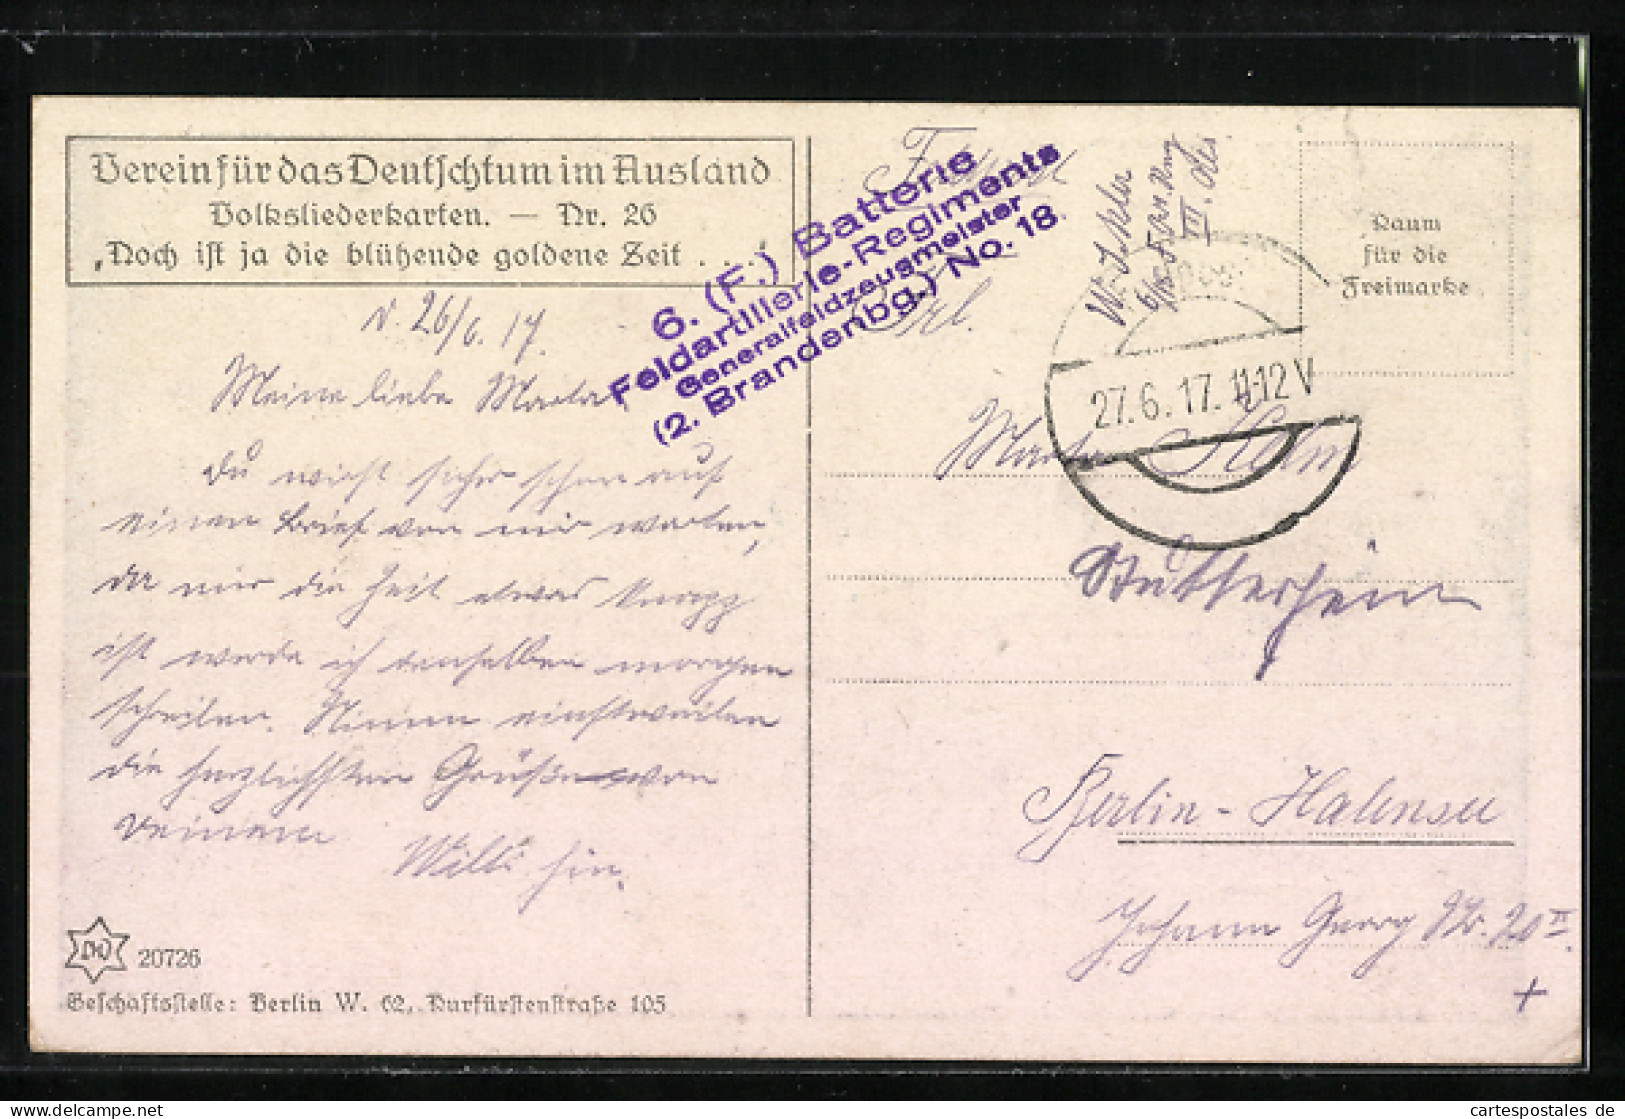 Verein für das Deutschtum im Ausland
Volksliederkarten. — Nr. 26
„Noch ist ja die blühende goldene Zeit . . . .“
26/6.17.
Meine liebe Marta!
Du wirst sicher schon auf
einen Brief von mir warten,
da mir die Zeit etwas knapp
ist werde ich denselben morgen
schreiben. Nimm einstweilen
die herzlichsten Grüße von
Deinem
Willi hin.
20726
Geschäftsstelle: Berlin W. 62, Kurfürstenstraße 105
6. (F.) Batterie
Feldartillerie-Regiments
Generalfeldzeugmeister
(2. Brandenbg.) No. 18.
Frl.
27.6.17.11-12V
Raum
für die
Freimarke
Marta
Berlin-Halensee
Johann Georg Str. 20 II.
cartespostales.de
www.delcampe.net